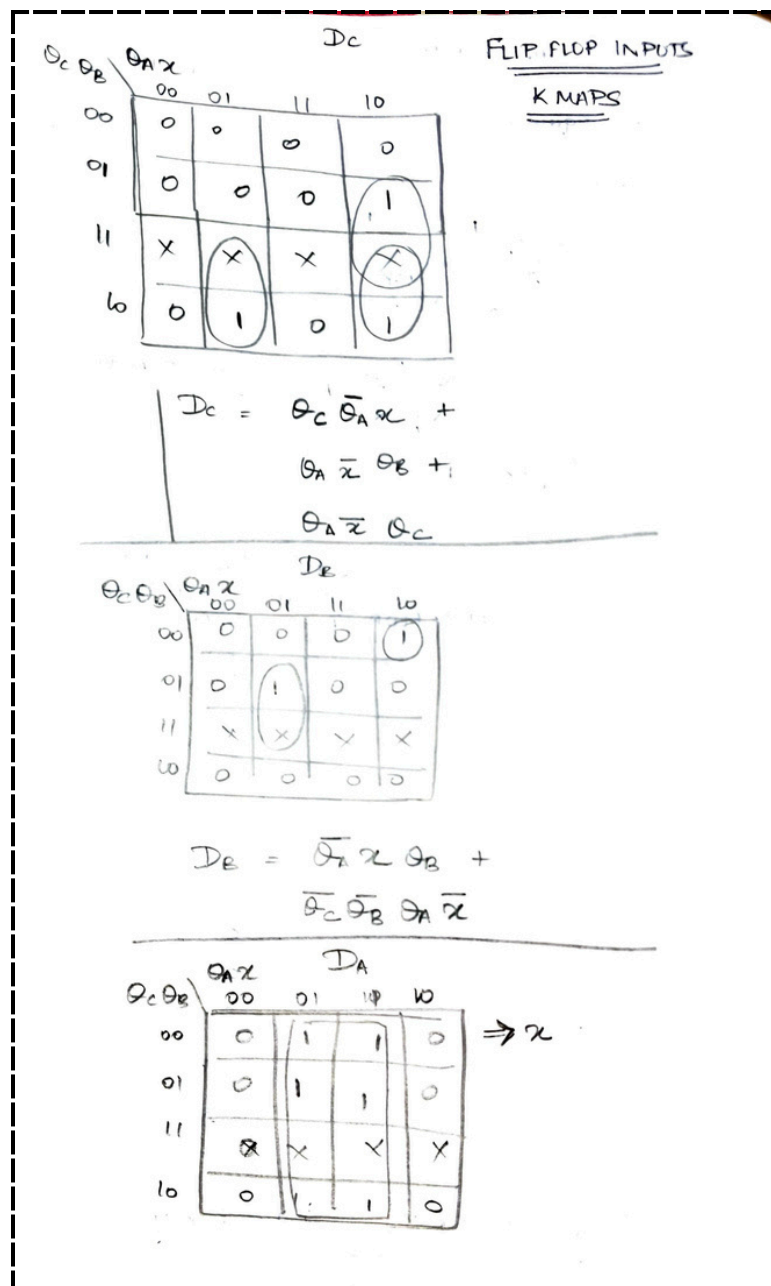 Dc
FLIP FLOP INPUTS
K MAPS
θc θB \ θA x
00 01 11 10
00 0 0 0 0
01 0 0 0 1
11 X X X X
10 0 1 0 1
Dc = θc θ̄A x +
θA x̄ θB +
θA x̄ θc
DB
θc θB \ θA x
00 01 11 10
00 0 0 0 1
01 0 1 0 0
11 X X X X
10 0 0 0 0
DB = θ̄A x θB +
θ̄c θ̄B θA x̄
DA
θc θB \ θA x
00 01 11 10
00 0 1 1 0 ⇒ x
01 0 1 1 0
11 X X X X
10 0 1 1 0